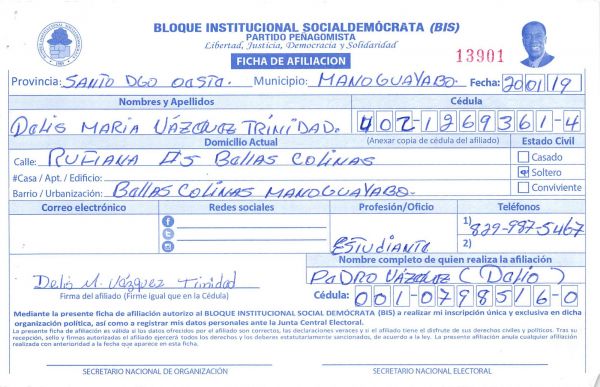 BLOQUE INSTITUCIONAL SOCIALDEMÓCRATA (BIS)
PARTIDO PEÑAGOMISTA
Libertad, Justicia, Democracia y Solidaridad
FICHA DE AFILIACION
13901
Provincia: SANTO DGO OESTE. Municipio: MANOGUAYABO. Fecha: 20/01/19
Nombres y Apellidos Cédula
Delis MARIA VÁZQUEZ TRINIDAD. 402-1269361-4
(Anexar copia de cédula del afiliado)
Domicilio Actual Estado Civil
Calle: RUFIANA #5 Bellas COLINAS Casado
#Casa / Apt. / Edificio: Soltero
Barrio / Urbanización: Bellas COLINAS MANOGUAYABO. Conviviente
Correo electrónico Redes sociales Profesión/Oficio Teléfonos
1) 829-987-5467
ESTUDIANTE 2)
Nombre completo de quien realiza la afiliación
Delis M. Vázquez Trinidad PEDRO VÁZQUEZ (Delio)
Firma del afiliado (Firme igual que en la Cédula) Cédula: 001-0798516-0
Mediante la presente ficha de afiliación autorizo al BLOQUE INSTITUCIONAL SOCIAL DEMÓCRATA (BIS) a realizar mi inscripción única y exclusiva en dicha
organización política, así como a registrar mis datos personales ante la Junta Central Electoral.
La presente ficha de afiliación es válida si los datos ofrecidos por el afiliado son correctos, las declaraciones veraces y si el afiliado tiene el disfrute de sus derechos civiles y políticos. Tras su
recepción, sello y firmas autorizadas el afiliado ejercerá todos los derechos y los deberes estatutariamente sancionados, de acuerdo a la ley. La presente afiliación anula cualquier afiliación
realizada con anterioridad a la fecha que aparece en esta ficha.
SECRETARIO NACIONAL DE ORGANIZACIÓN SECRETARIO NACIONAL ELECTORAL